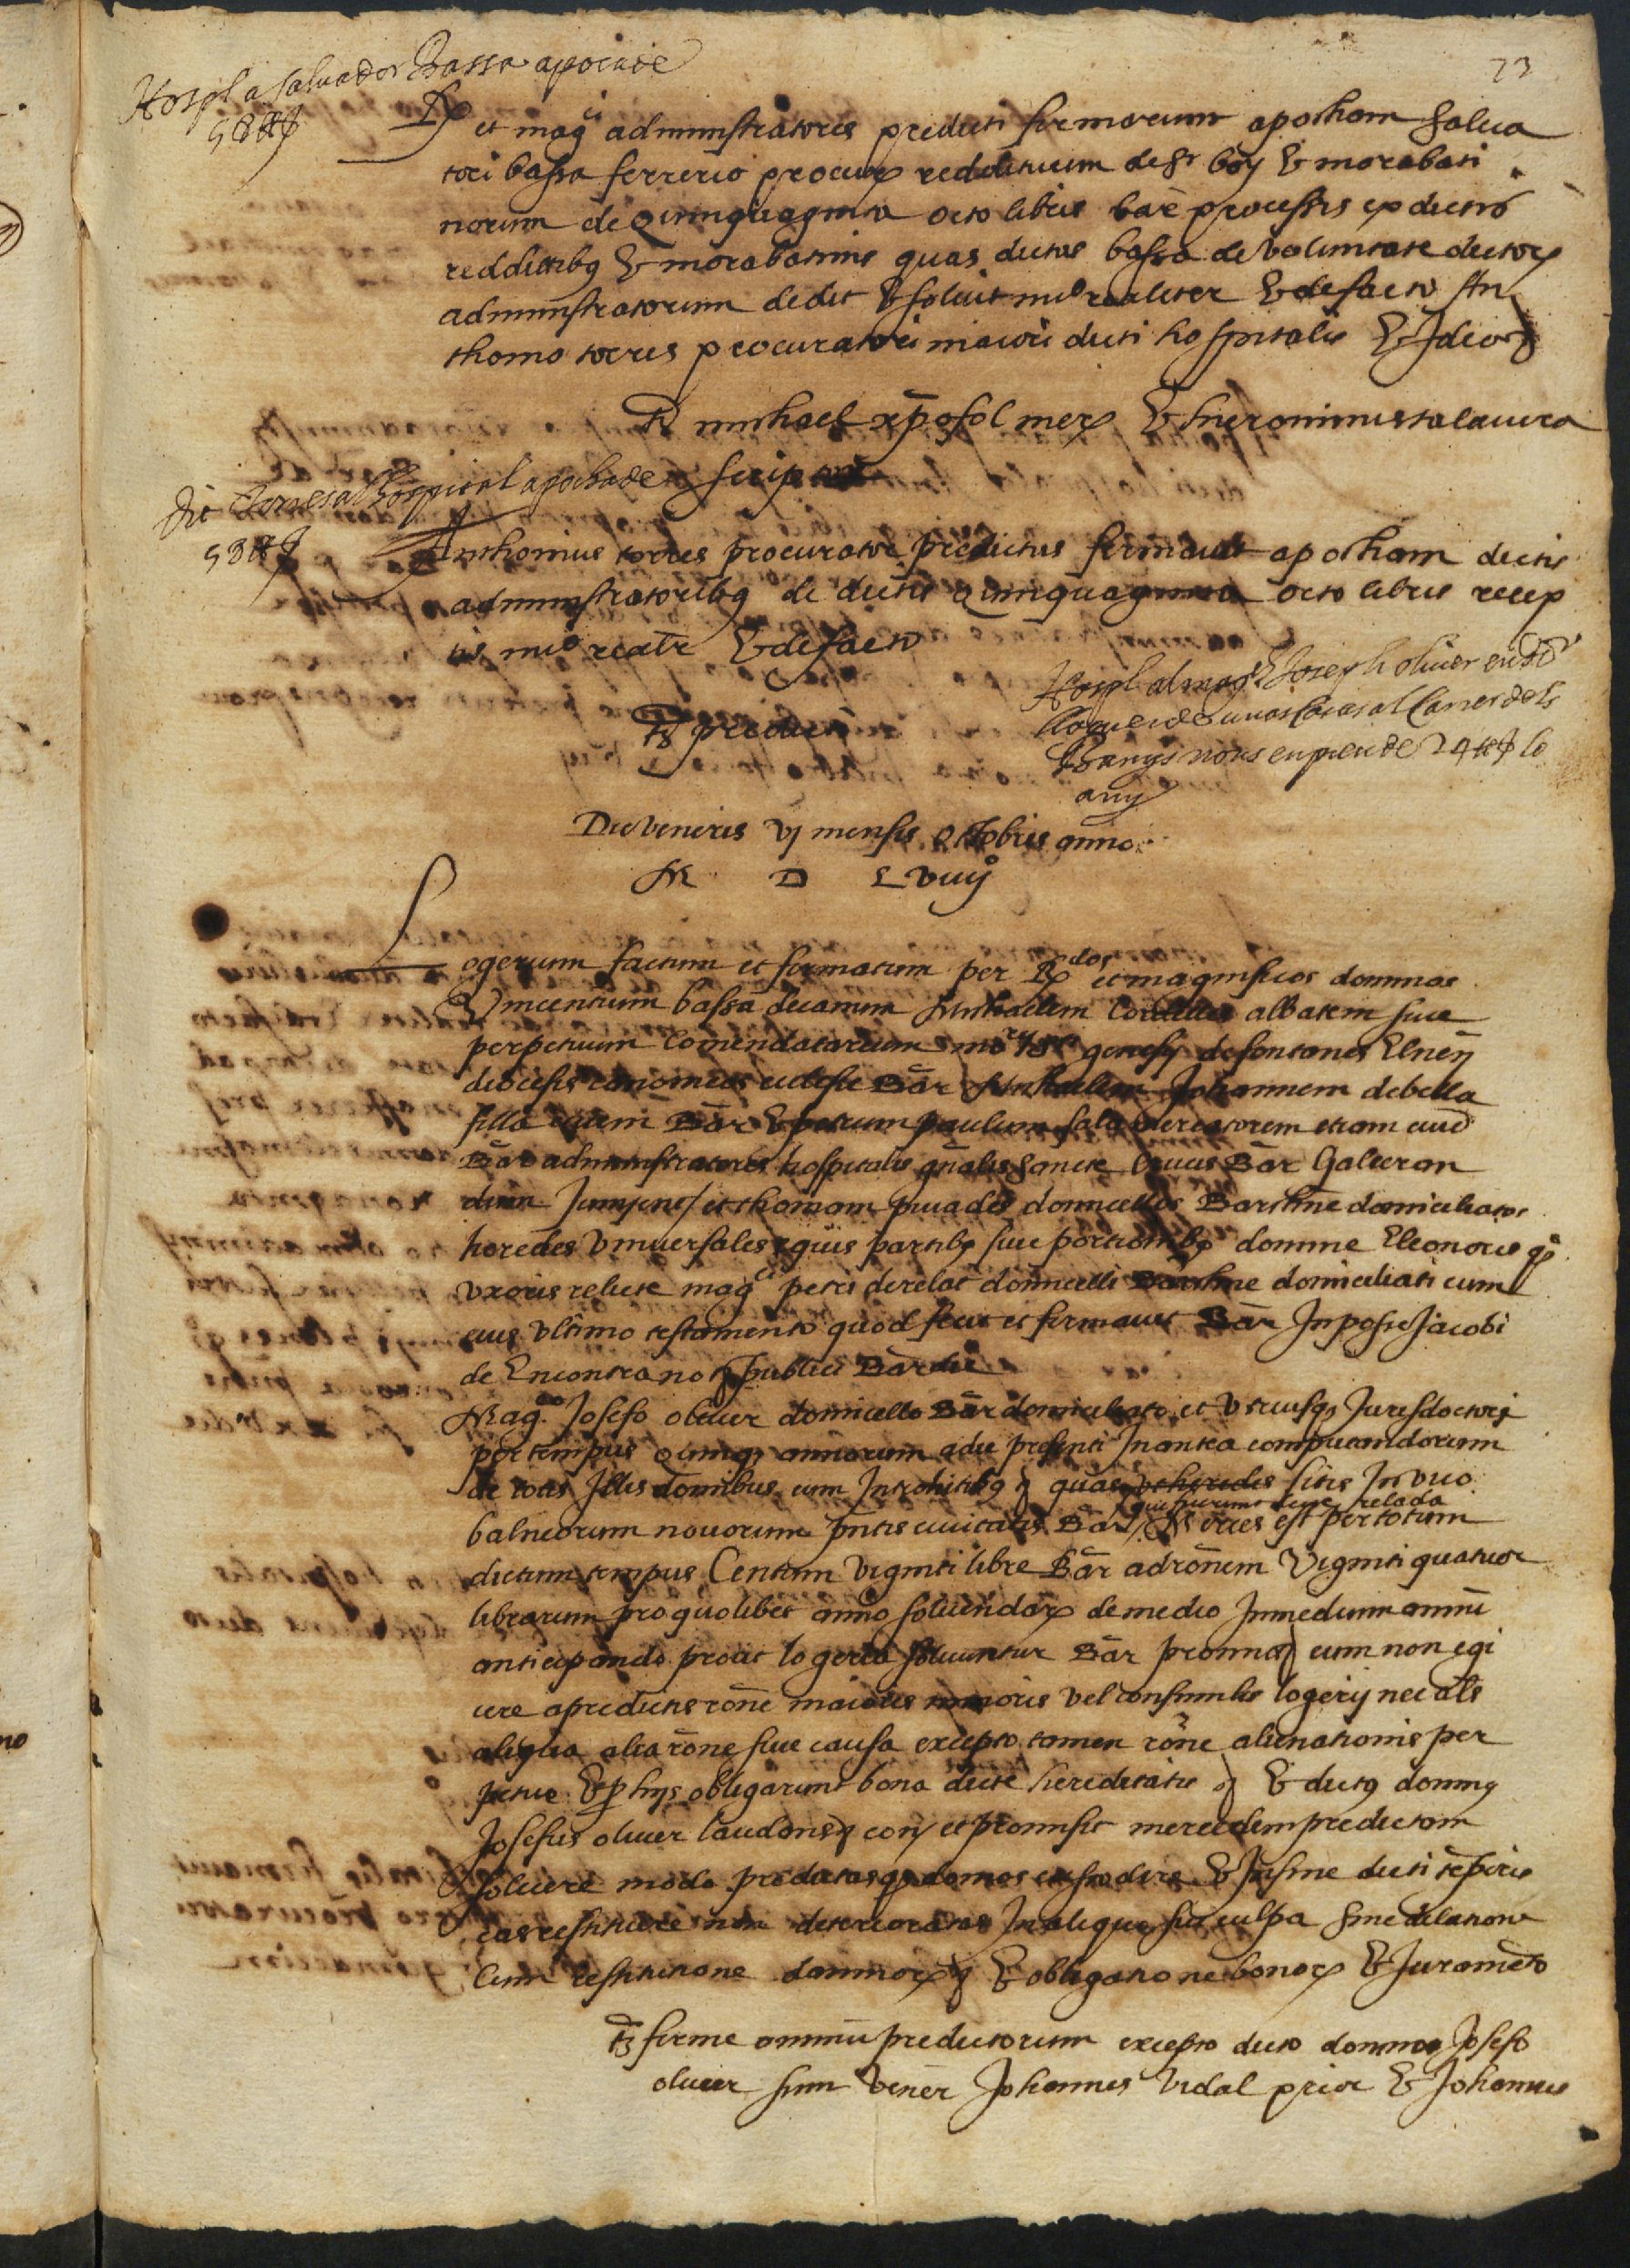 73
Hospl a salvador Bassa apocade
58 ₶
Rx et mag^ci administratores predicti firmarunt apocham salua
tori bassa ferrerio procur redditum de st boy & morabati
norum de Quinquaginta octo libris bar processis ex dictis
redditibq & morabatinis quas dictus bassa de voluntate dictor
administratorum dedit & soluit mi^o realiter & de facto An
thonio torres procuratori maiori dicti hospitalis & Ideo
ts michael xpofol mer & hieronimus talauera
scriptor
dit torres al hospital apochade
58 ₶
Anthonius torres procurator predictus firmauit apocham dictis
administratoribq de dictis Quinquaginta octo libris recep
tis mi^o realr & de facto
ts predicti
Hospl al mag^ch Joseph oliuer
lloguer de unas casas al Carrer dels
Banys nous en preu de 24 ₶ lo
any
Die veneris vj mensis octobris anno
M D L viiij^o
Logerium factum et formatum per Rx^dos et magnificos dominos
Vincentium bassa decanum Michaelem abbatem siue
perpetuum Comendatarium mo^rij st genesij de fontanes Elnen
diocesis canonicos ecclesie Bar Johannem de bella
filla ciuem Bar & petrum paulum sala mercatorem etiam ciue
Bar administratores hospitalis gnalis sancte Crucis Bar Galceran
dum Junyent et thomam piuades domicellos Barchne domiciliatos
heredes vniuersales equis partibq siue portionibq domine Eleonoris q^o
vxoris relicte mag^ci petri de relat domicelli Barchne domiciliati cum
eius vltimo testamento quod fecit et firmauit Bar In posse Jacobi
de Encontra not publici Bar die
Mag^co Josefo oliuer domicello Bar domiciliato et vtriusq Juris doctori
per tempus quinq annorum a die presenti Inantea computandorum
de totis Illis domibus cum Introhitibq quas vt heredes sitis In vico
que fuerunt dicte relada
balneorum nouorum pntis ciuitatis Bar Merces est per totum
dictum tempus Centum viginti libre Bar ad ronem viginti quatuor
librarum pro quolibet anno soluendar de medio In medium annum
anticipando prout logeria soluuntur Bar promitt eum non eqi
cere a predictis rone maioris minoris vel consimilis logerij nec als
aliqua alia rone siue causa excepto tamen rone alienationis per
petue & p hijs obligarunt bona dicte hereditatis & dictq dominq
Josefus oliuer laudans con et promisit mercedem predictam
soluere modo predictasq domos custodire & In fine dicti tepris
eas restituere non deterioratas In aliquo sui culpa sine dilatione
Cum restitutione damnor & obligatione bonor & Jurameto
ts firme omniu predictorum excepto dicto domino Josefo
oliuer sunt vener Johannes vidal prior & Johannes